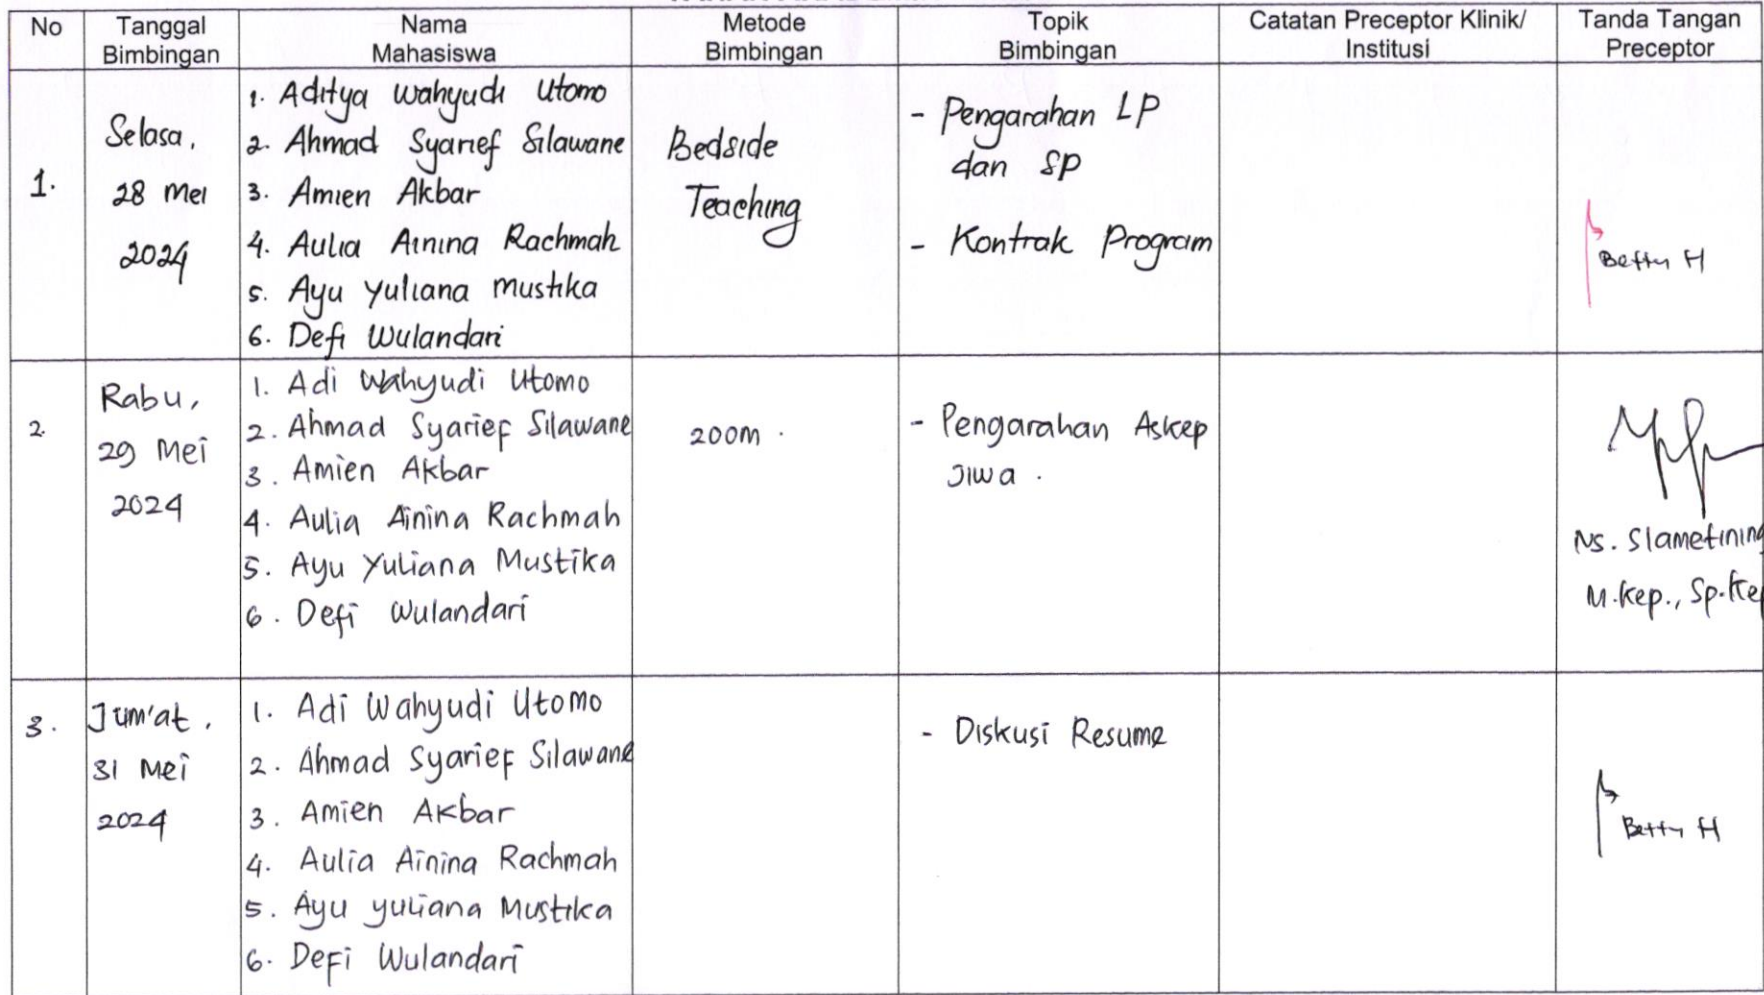 No
Tanggal
Bimbingan
Nama
Mahasiswa
Metode
Bimbingan
Topik
Bimbingan
Catatan Preceptor Klinik/
Institusi
Tanda Tangan
Preceptor
1.
Selasa,
28 Mei
2024
1. Aditya Wahyudi Utomo
2. Ahmad Syarief Silawane
3. Amien Akbar
4. Aulia Ainina Rachmah
5. Ayu Yuliana Mustika
6. Defi Wulandari
Bedside
Teaching
- Pengarahan LP
dan SP
- Kontrak Program
Betty H
2.
Rabu,
29 Mei
2024
1. Adi Wahyudi Utomo
2. Ahmad Syarief Silawane
3. Amien Akbar
4. Aulia Ainina Rachmah
5. Ayu Yuliana Mustika
6. Defi Wulandari
200m.
- Pengarahan Askep
Jiwa.
Ns. Slametining
M.Kep., Sp.Kep
3.
Jum'at,
31 Mei
2024
1. Adi Wahyudi Utomo
2. Ahmad Syarief Silawane
3. Amien Akbar
4. Aulia Ainina Rachmah
5. Ayu Yuliana Mustika
6. Defi Wulandari
- Diskusi Resume
Betty H